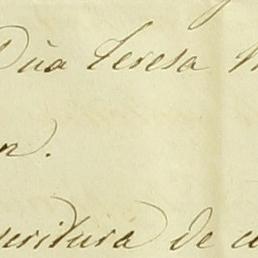 Dña Teresa
n.
scritura de c